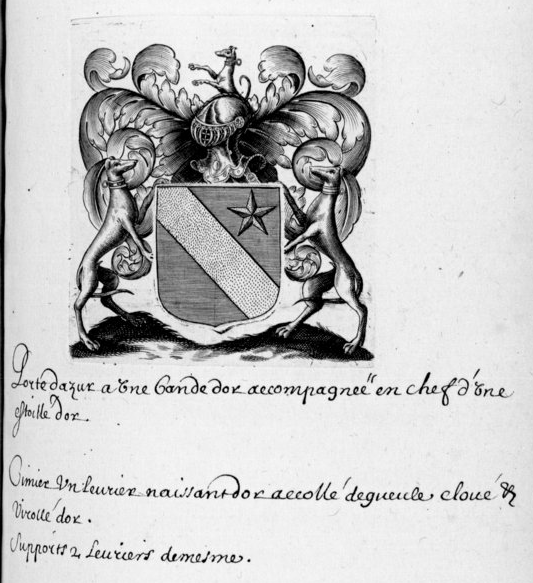 Porte dazur a vne bande dor accompagneé en chef d'vne
estoillé dor.
Cimier Vn leurier naissant dor accollé de gueule cloué &
virollé dor.
Supports 2 leuriers demesme.